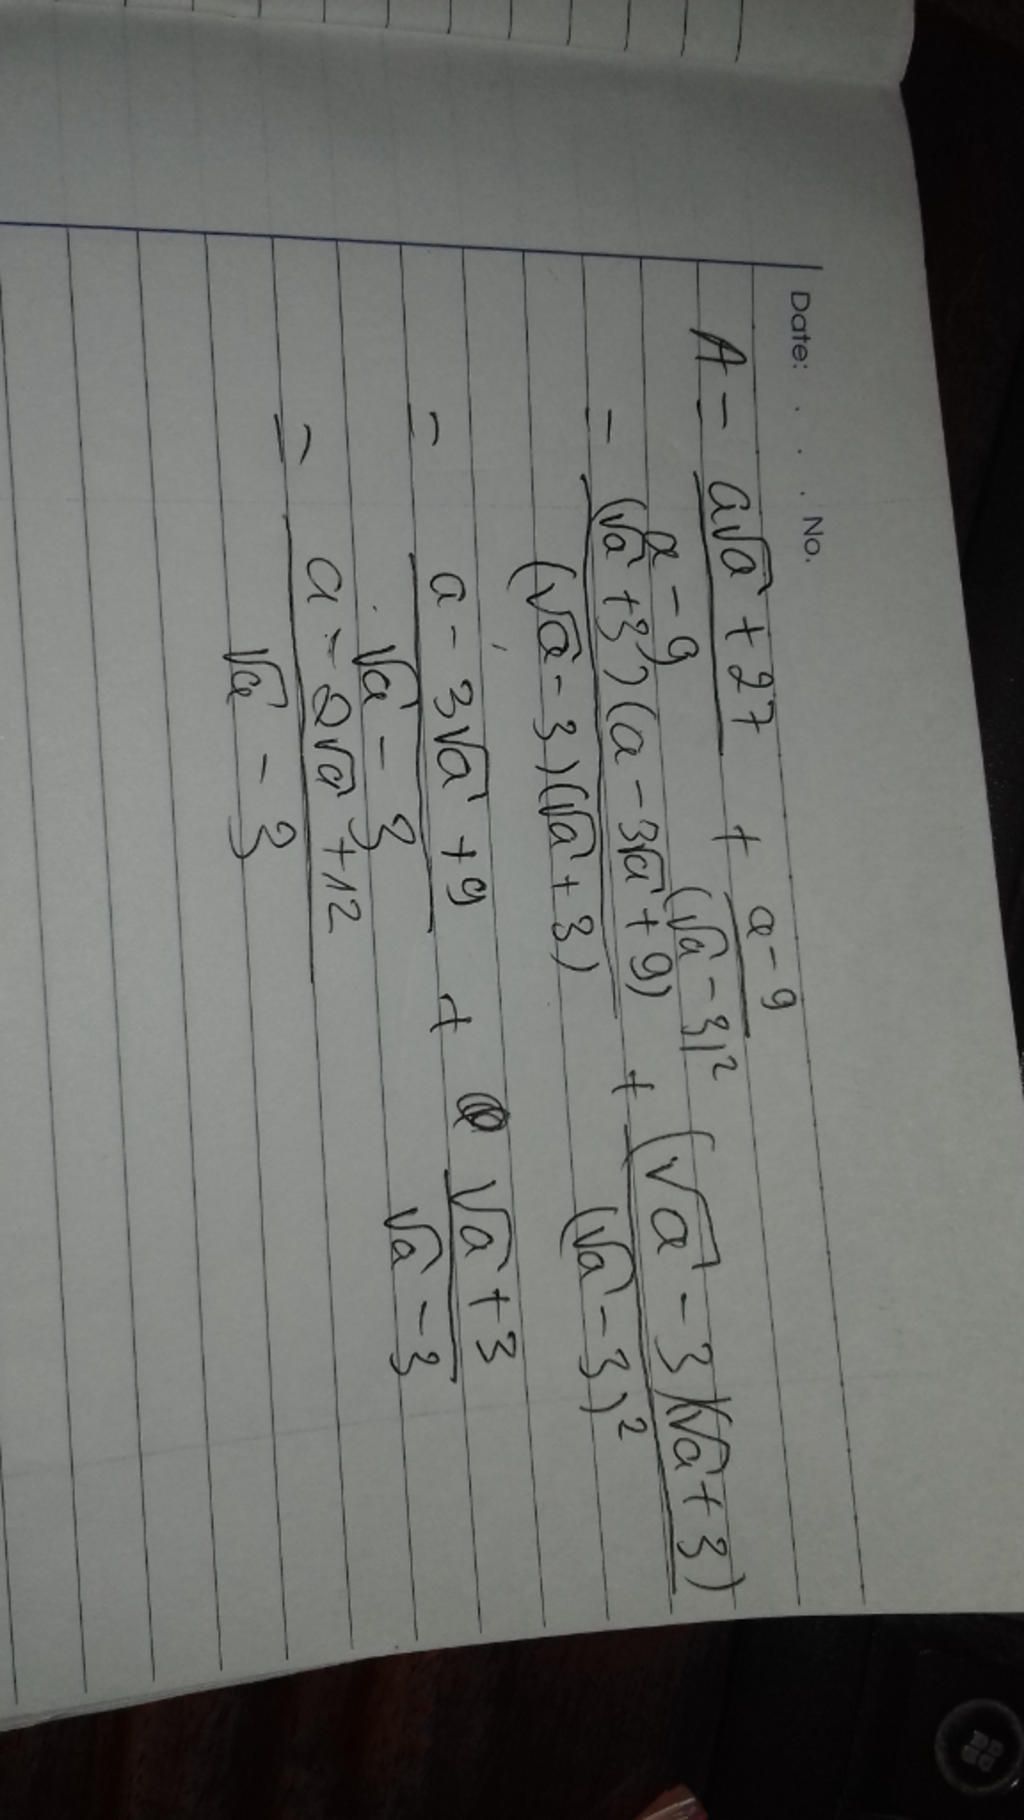 Date: . . . No.
A = \frac{a\sqrt{a} + 27}{a - 9} + \frac{a - 9}{(\sqrt{a} - 3)^2}
= \frac{(\sqrt{a} + 3)(a - 3\sqrt{a} + 9)}{(\sqrt{a} - 3)(\sqrt{a} + 3)} + \frac{(\sqrt{a} - 3)(\sqrt{a} + 3)}{(\sqrt{a} - 3)^2}
= \frac{a - 3\sqrt{a} + 9}{\sqrt{a} - 3} + \frac{\sqrt{a} + 3}{\sqrt{a} - 3}
= \frac{a - 2\sqrt{a} + 12}{\sqrt{a} - 3}